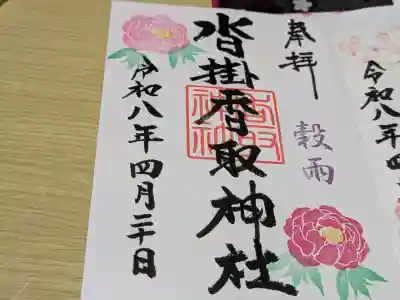 奉拝
穀雨
沓掛香取神社
令和八年四月二十日
令和八年